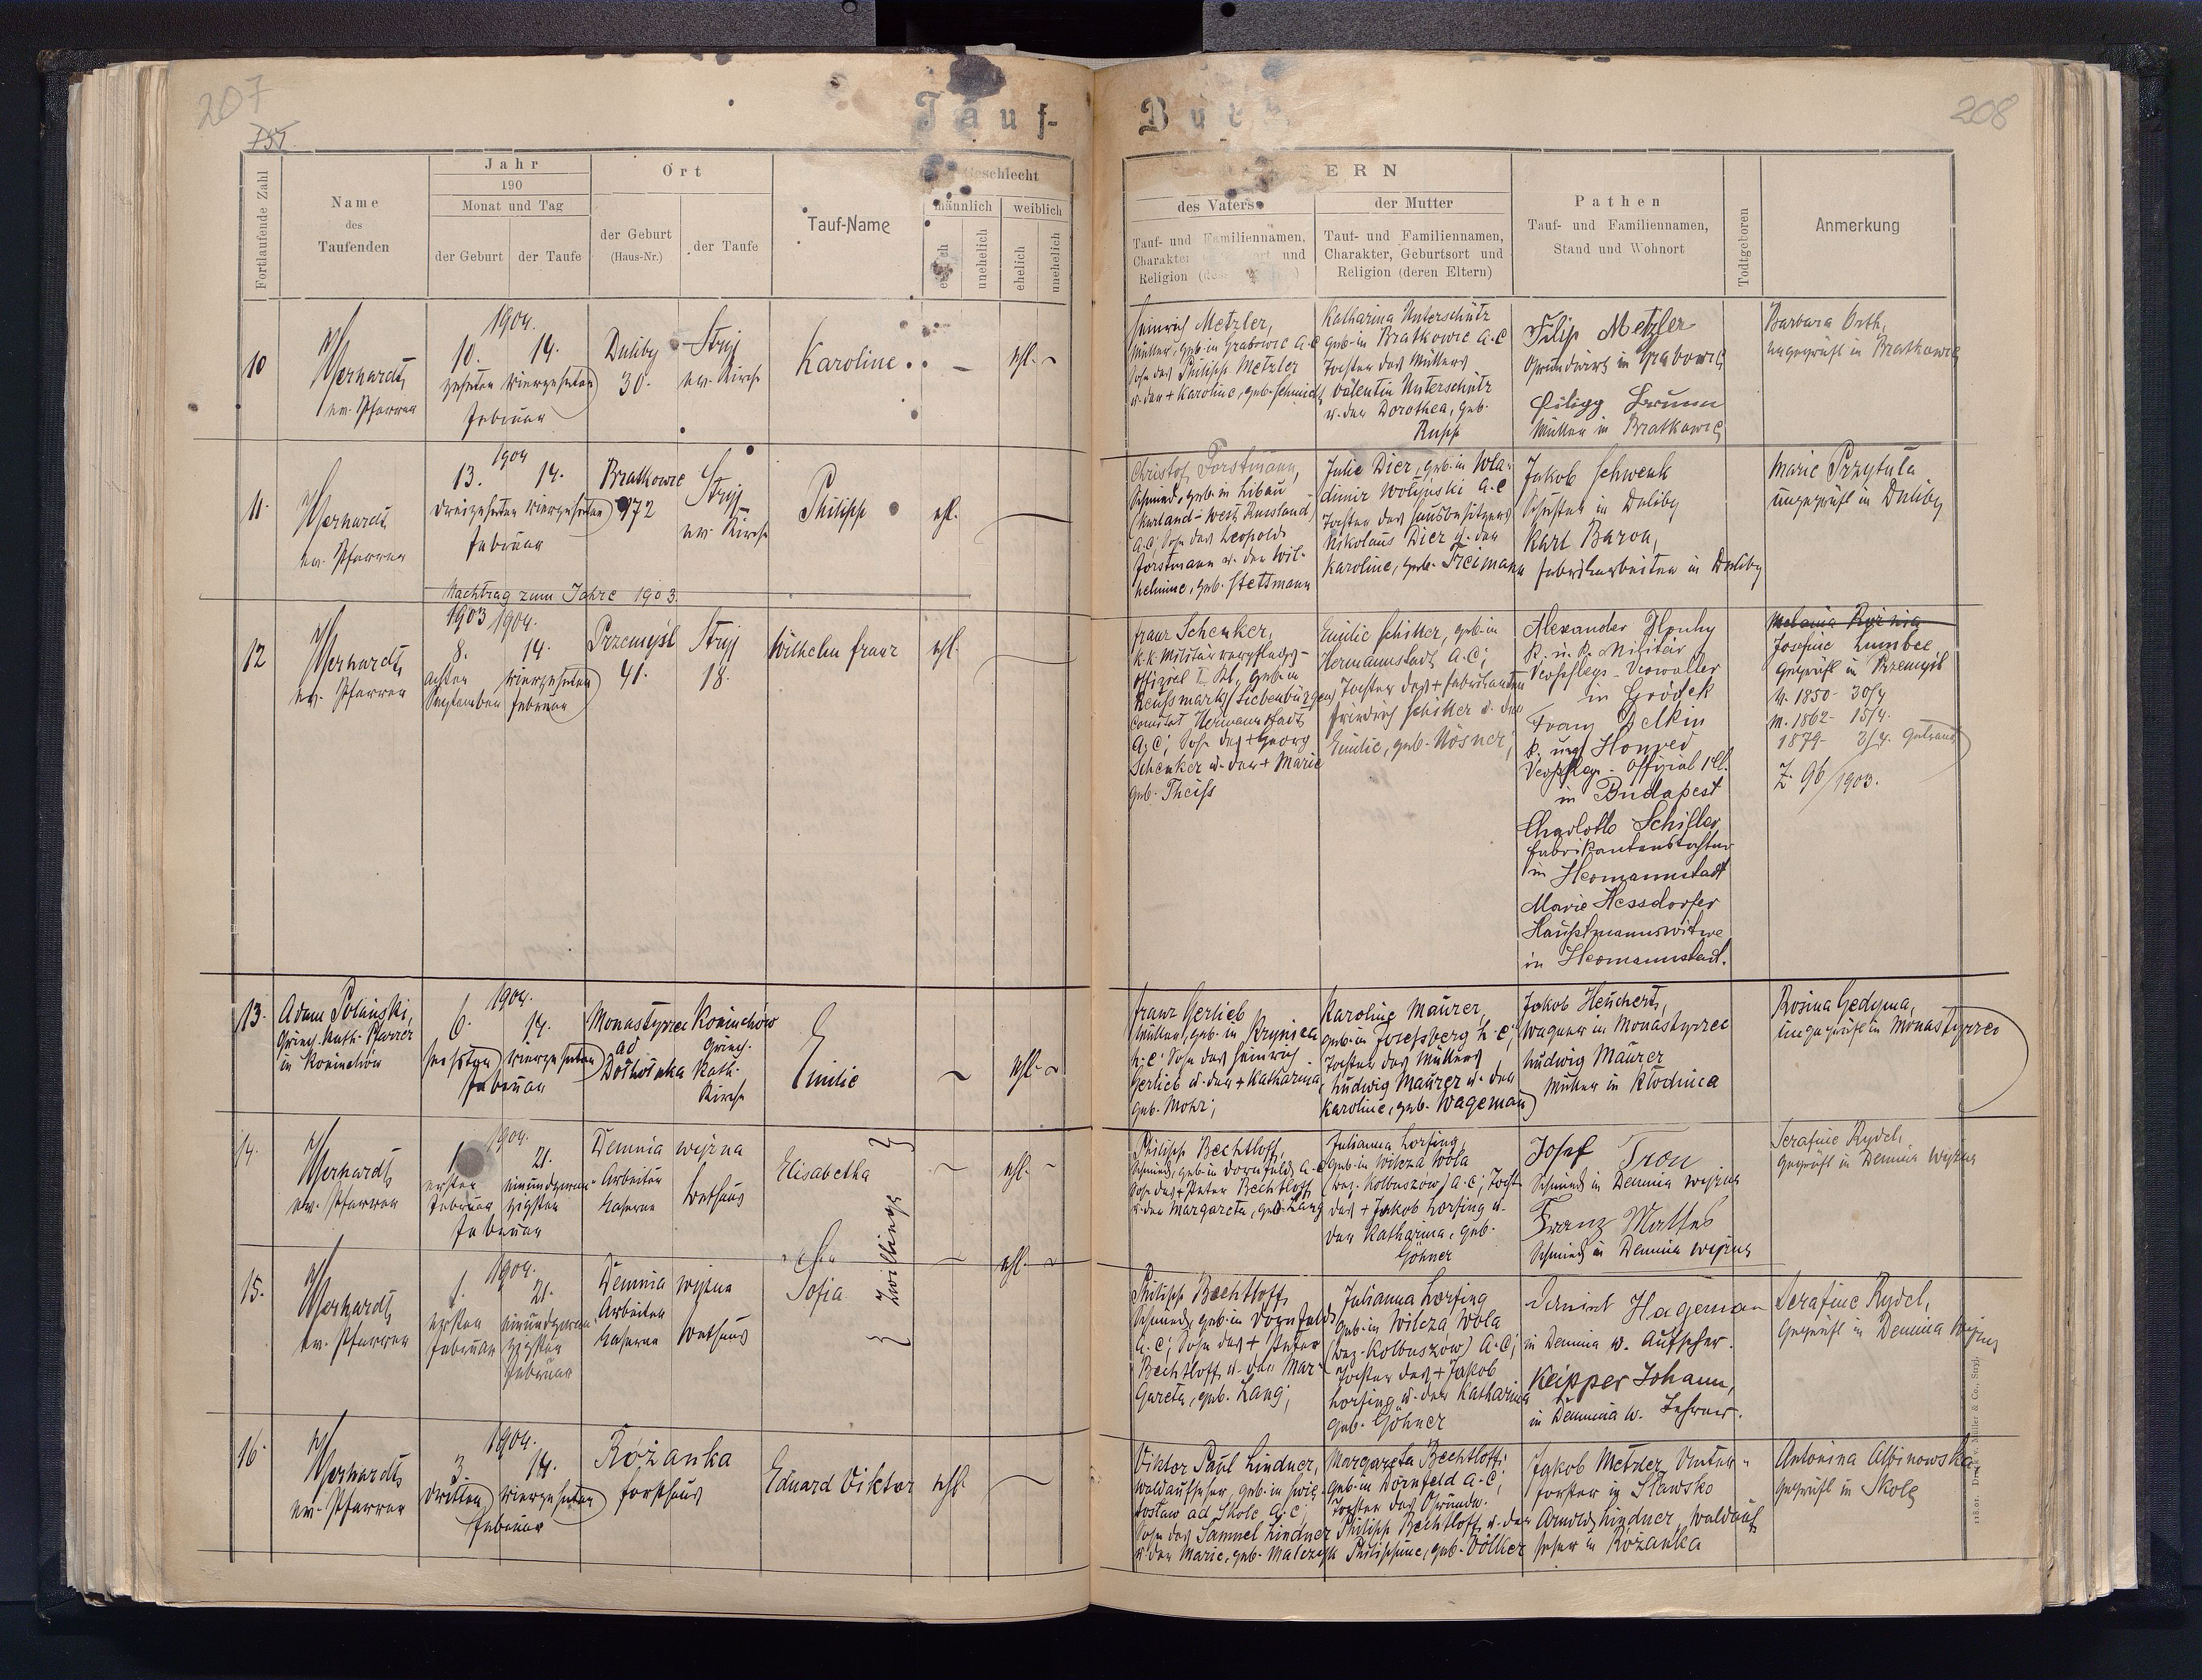 207
208
Tauf-
Buch
Fortlaufende Zahl
Name
des
Taufenden
Jahr
190
Monat und Tag
der Geburt
der Taufe
Ort
der Geburt
(Haus-Nr.)
der Taufe
Tauf-Name
Geschlecht
männlich
weiblich
ehelich
unehelich
ehelich
unehelich
ELTERN
des Vaters
Tauf- und Familiennamen,
Charakter, Geburtsort und
Religion
der Mutter
Tauf- und Familiennamen,
Charakter, Geburtsort und
Religion (deren Eltern)
Pathen
Tauf- und Familiennamen,
Stand und Wohnort
Todtgeboren
Anmerkung
10
ev. Pfarrer
1904.
10. 14.
zehnten vierzehnten
Februar
Duliby
30.
Stryj
ev. Kirche
Karoline
–
ehl.
Heinrich Metzler,
Müller, geb. in Grabowce A.C
Sohn des Philipp Metzler
u. der + Karoline, geb. Schmidt
Katharina Unterschütz
geb. in Bratkowce A.C
Tochter des Müllers
Valentin Unterschütz
u. der Dorothea, geb.
Rupp
Filip Metzler
Grundwirt in Grabowce
Filipp Brunn
Müller in Bratkowce
Barbara Orth,
ungeprüft in Bratkowce
11.
ev. Pfarrer
1904
13. 14.
dreizehnten vierzehnten
Februar
Bratkowce
172
Stryj
ev. Kirche
Philipp
ehl.
Christof Forstmann,
Schmied, geb. in Libau
(Kurland-West Russland)
A.C; Sohn des Leopold
Forstmann u. der Wil-
helmine, geb. Stettmann
Julie Dier, geb. in Wla-
dimir Wolynski A.C
Tochter des Hausbesitzers
Nikolaus Dier u. der
Karoline, geb. Freimann
Jakob Schwenk
Schuster in Duliby
Karl Baron,
Fabriksarbeiter in Duliby
Marie Przytuła
ungeprüft in Duliby
Nachtrag zum Jahre 1903.
12
ev. Pfarrer
1903 1904.
8. 14.
achten vierzehnten
September Februar
Przemyśl
41.
Stryj
18.
Wilhelm Franz
ehl.
Franz Schenker,
k.k. Militärverpflegs-
offizial I. Kl., geb. in
Reussmarkt/Siebenbürgen
Comitat Hermannstadt
A.C; Sohn des + Georg
Schenker u. der + Marie
geb. Theiss
Emilie Schiller, geb. in
Hermannstadt A.C;
Tochter des + Fabrikanten
Friedrich Schiller u. der
Emilie, geb. Nösner;
Alexander
k. u. k. Militär
Verpflegs-Verwalter
in Gródek
Franz
k. ung. Honved
Verpflegs-Offizial I Cl.
in Budapest
Charlotte Schiller
Fabrikantenstochter
in Hermannstadt
Marie Hessdorfer
Hauptmannswitwe
in Hermannstadt.
Josefine Lumbee
geprüft in Przemyśl
V. 1850- 30/4
M. 1862- 15/4.
1879- 3/4. getraut
Z. 96/1903.
13.
Adam Polański,
griech. kath. Pfarrer
in Koniuchów
1904.
6. 14.
sechsten vierzehnten
Februar
Monastyrec
ad
Dołhołuka
Koniuchów
griech.
kath.
Kirche
Emilie
ehl.
Franz Gerlieb
Müller, geb. in Krynica
H.C. Sohn des Heinrich
Gerlieb u. der + Katharina,
geb. Mohr;
Karoline Maurer,
geb. in Josefsberg H.C;
Tochter des Müllers
Ludwig Maurer u. der
Karoline, geb. Wageman
Jakob Heuchert,
Wagner in Monastyrec
Ludwig Maurer
Müller in Kłodnica
Rosina Gedyma,
ungeprüft in Monastyrec
14.
ev. Pfarrer
1904.
1. 21.
ersten einundzwan-
Februar zigsten
Februar
Demnia wyżna
Arbeiter
kaserne
Bethaus
Elisabetha
Zwillinge
ehl.
Philipp Bechtloff,
Schmied, geb. in Dornfeld A.C
Sohn des + Peter Bechtloff
u. der Margareta, geb. Lang
Julianna Lorsing,
geb. in Wilcza Wola
(Bez. Kolbuszow) A.C; Tocht.
des + Jakob Lorsing u.
der Katharina, geb.
Göhner
Josef Tron
Schmied in Demnia wyżna
Franz Mattes
Schmied in Demnia wyżna
Serafine Rydel,
geprüft in Demnia wyżna
15.
ev. Pfarrer
1904.
1. 21.
ersten einundzwan-
Februar zigsten
Februar
Demnia wyżna
Arbeiter
kaserne
Bethaus
Sofia
ehl.
Philipp Bechtloff,
Schmied, geb. in Dornfeld
A.C; Sohn des + Peter
Bechtloff u. der Mar-
gareta, geb. Lang;
Julianna Lorsing
geb. in Wilcza Wola
(Bez. Kolbuszow) A.C;
Tochter des + Jakob
Lorsing u. der Katharina
geb. Göhner
Hageman
in Demnia w. Aufseher.
Keipper Johann,
in Demnia w. Lehrer.
Serafine Rydel,
geprüft in Demnia wyżna
16
ev. Pfarrer
1904.
3. 14.
dritten vierzehnten
Februar
Rożanka
Forsthaus
Eduard Viktor
ehl.
Viktor Paul Lindner,
Waldaufseher, geb. in Swię-
tosław ad Skole A.C;
Sohn des Samuel Lindner
u. der Marie, geb. Malczyk
Margareta Bechtloff,
geb. in Dornfeld A.C;
Tochter des Grundw.
Philipp Bechtloff u. der
Philippine, geb. Völker
Jakob Metzler, Unter-
förster in Sławsko
Arnold Lindner, Waldauf-
seher in Rożanka
Antonina Albinowska,
geprüft in Skole
Müller & Co., Stryj.